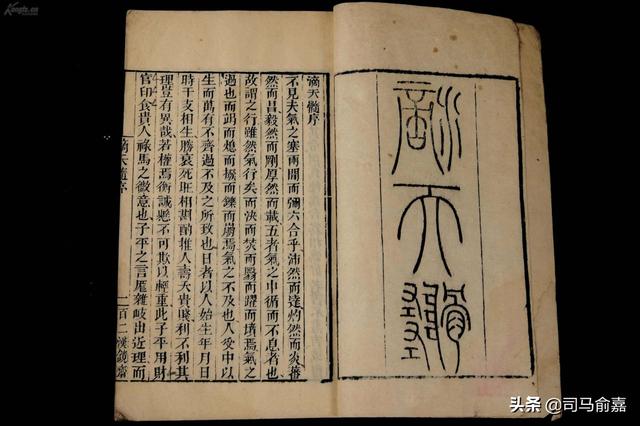 滴天髓
滴天髓序
不見夫氣之塞兩間而彌六合乎沛然而達灼然而炎蕃
然而昌毅然而剛厚然而載五者氣之中循而不息者也
故謂之行雖然氣行矣而泱而焚而翳而躍而墳焉氣之
過也而竭而熄而而鑠而崩焉氣之不及也人受中以
生而萬有不齊過不及之所致也日者以人始生年月日
時干支相生勝衰死旺相斟酌推人壽夭貴賤利不利其
理豈有異哉若權焉衡誠懸不可欺以輕重此子平用財
官印食貴人祿馬之微意也子平之言厖雜岐出近理而
滴天髓序
一 百二漢鏡齋
头条 @司马俞嘉